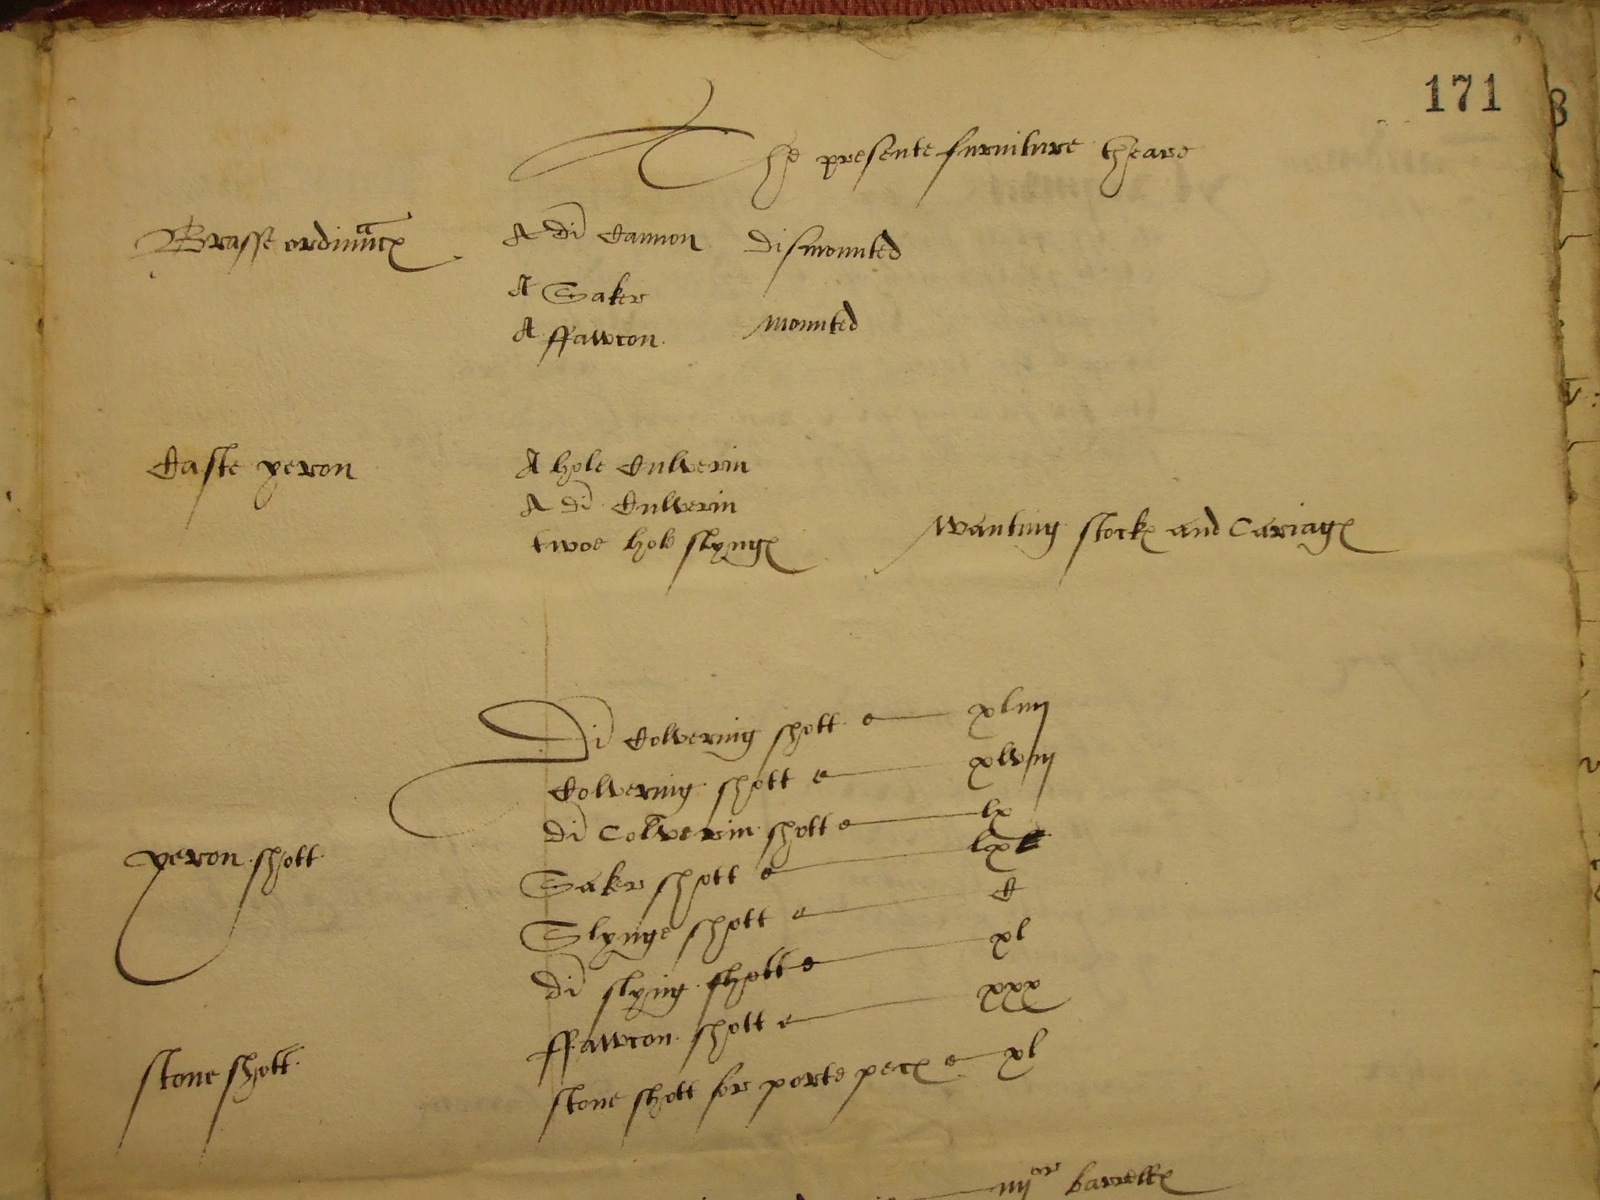 171
The presente furniture theare
Brasse ordinãces A di Cannon dismounted
A Saker
A ffawcon mounted
Caste yeron A hole Culverin
A di Culverin
twoe hole slynges Wanting stockes and Cariages
Di Colvering shott xliiij
Colvering shott xlviij
di Colverin shott lx
yeron shott
Saker shott
Slynge shott C
di slyng shott xl
ffawcon shott xxx
stone shott
stone shott for porte peces xl
iiij or barrelles